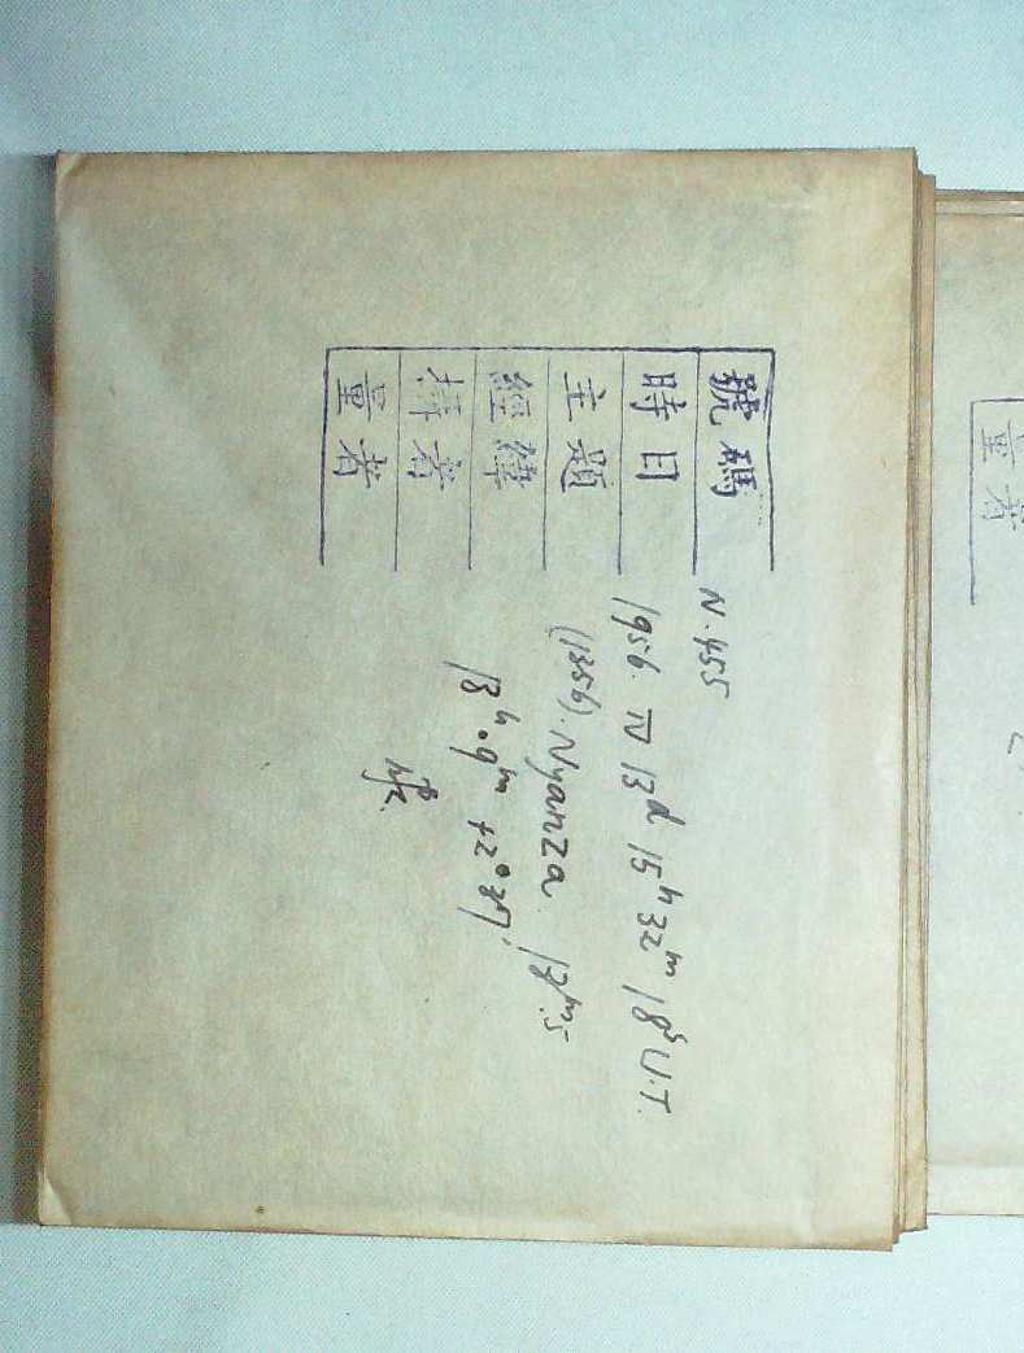 號碼 N.455
時日 1956. IV 13d 15h 32m 18s U.T.
主題 (1356). Nyanza 17m.5
經緯 13h.9m +2°.37'
攝者
量者
量者